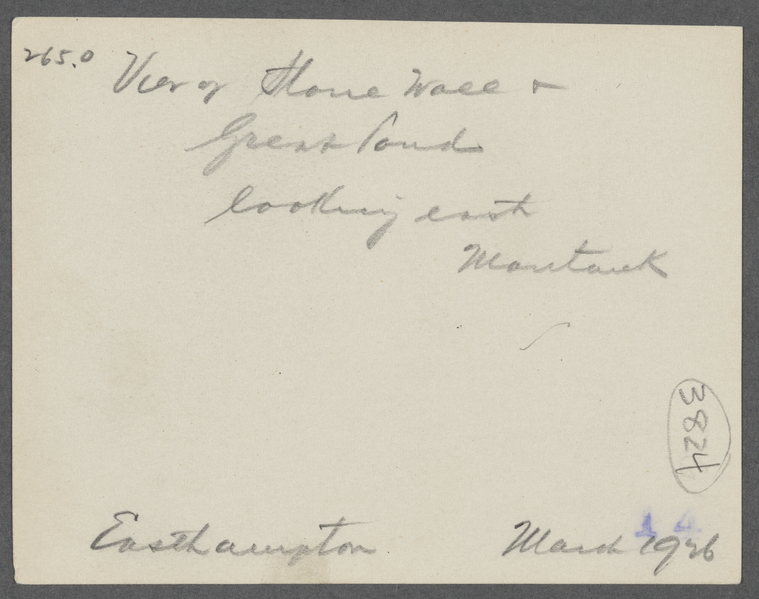 265.0
View of Stone Wall &
Great Pond
looking east
Montauk
3824
14
Easthampton March 1926